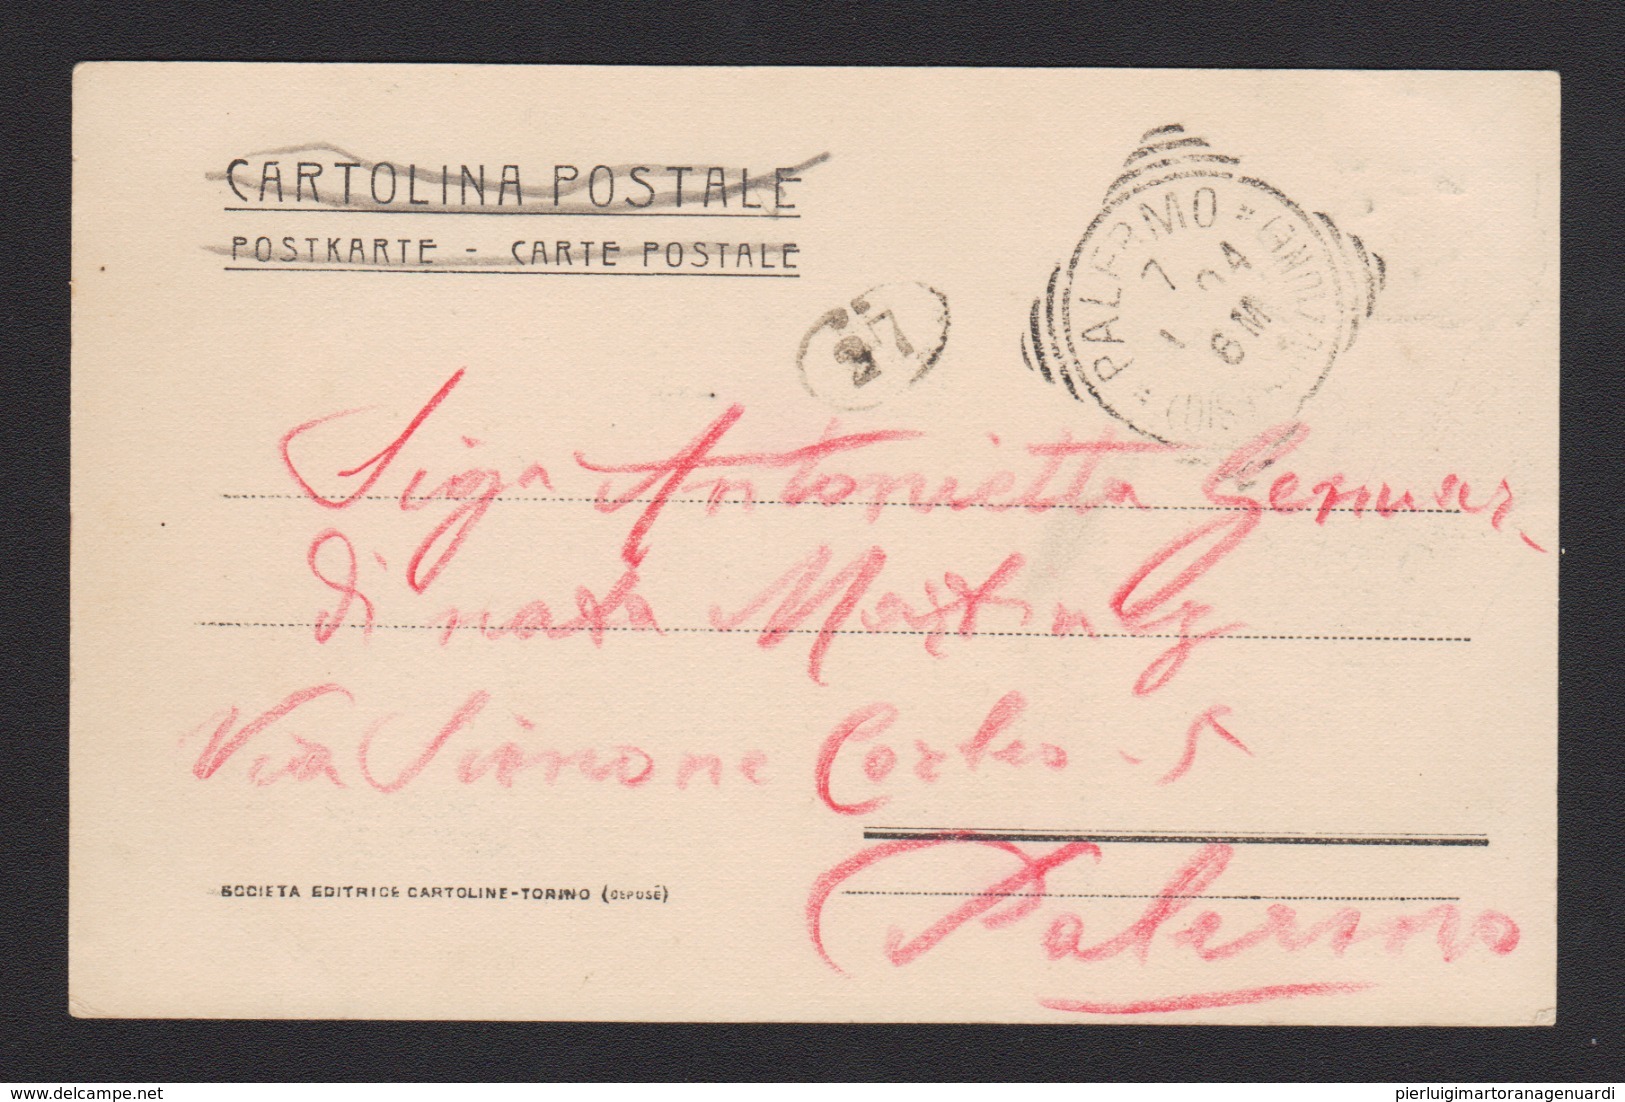 CARTOLINA POSTALE
POSTKARTE - CARTE POSTALE
PALERMO
7 1 04
6 M
27
Siga Antonietta Genuar-
di nata Mastin
Via Simone Corleo - 5
Palermo
SOCIETA EDITRICE CARTOLINE-TORINO (DEPOSÉ)
www.delcampe.net
pierluigimartoranagenuardi